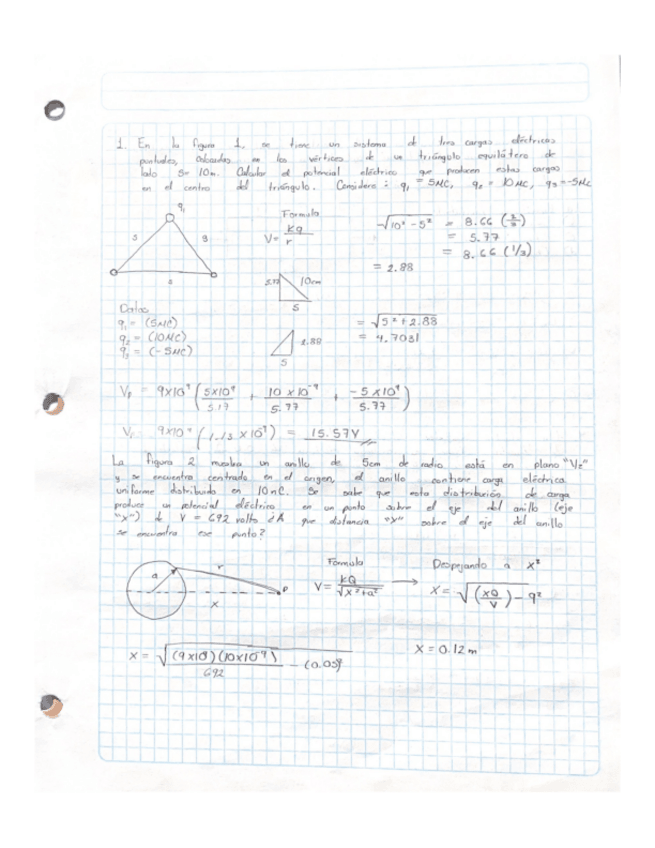 1. En la figura 1, se tiene un sistema de tres cargas eléctricas
puntuales, Colocadas en los vértices de un triángulo equilátero de
lado S= 10m. Calcular el potencial eléctrico que producen estas cargas
en el centro del triángulo. Considere: q1 = 5μC, q2 = 10μC, q3=-5μC
q1
S S
S
Formula
V= KQ/r
√10² - 5² = 8.66 (2/3)
= 5.77
= 8.66 (1/3)
= 2.88
10cm
5
2.88
5
= √5² + 2.88
= 4.7031
Datos
q1 = (5μC)
q2 = (10μC)
q3 = (-5μC)
Vp = 9x10⁹ (5x10⁹/5.17 + 10 x10⁻⁹/5.77 + -5 x10⁹/5.77)
9x10⁹ (1.73 x 10⁹) = 15.57V
La figura 2 muestra un anillo de 5cm de radio está en plano "Yz"
y se encuentra centrado en el origen, el anillo contiene carga eléctrica
uniforme distribuido en 10nC. Se sabe que esta distribución de carga
produce un potencial eléctrico en un punto sobre el eje del anillo (eje
"x") de V = 692 volts ¿A que distancia "x" sobre el eje del anillo
se encuentra ese punto?
a r P
x
Formula
V= KQ/√x²+a²
Despejando a x²
X= √(KQ/V) - a²
X = √(9x10⁹)(10x10⁻⁹)/692 - (0.05)²
X = 0.12 m